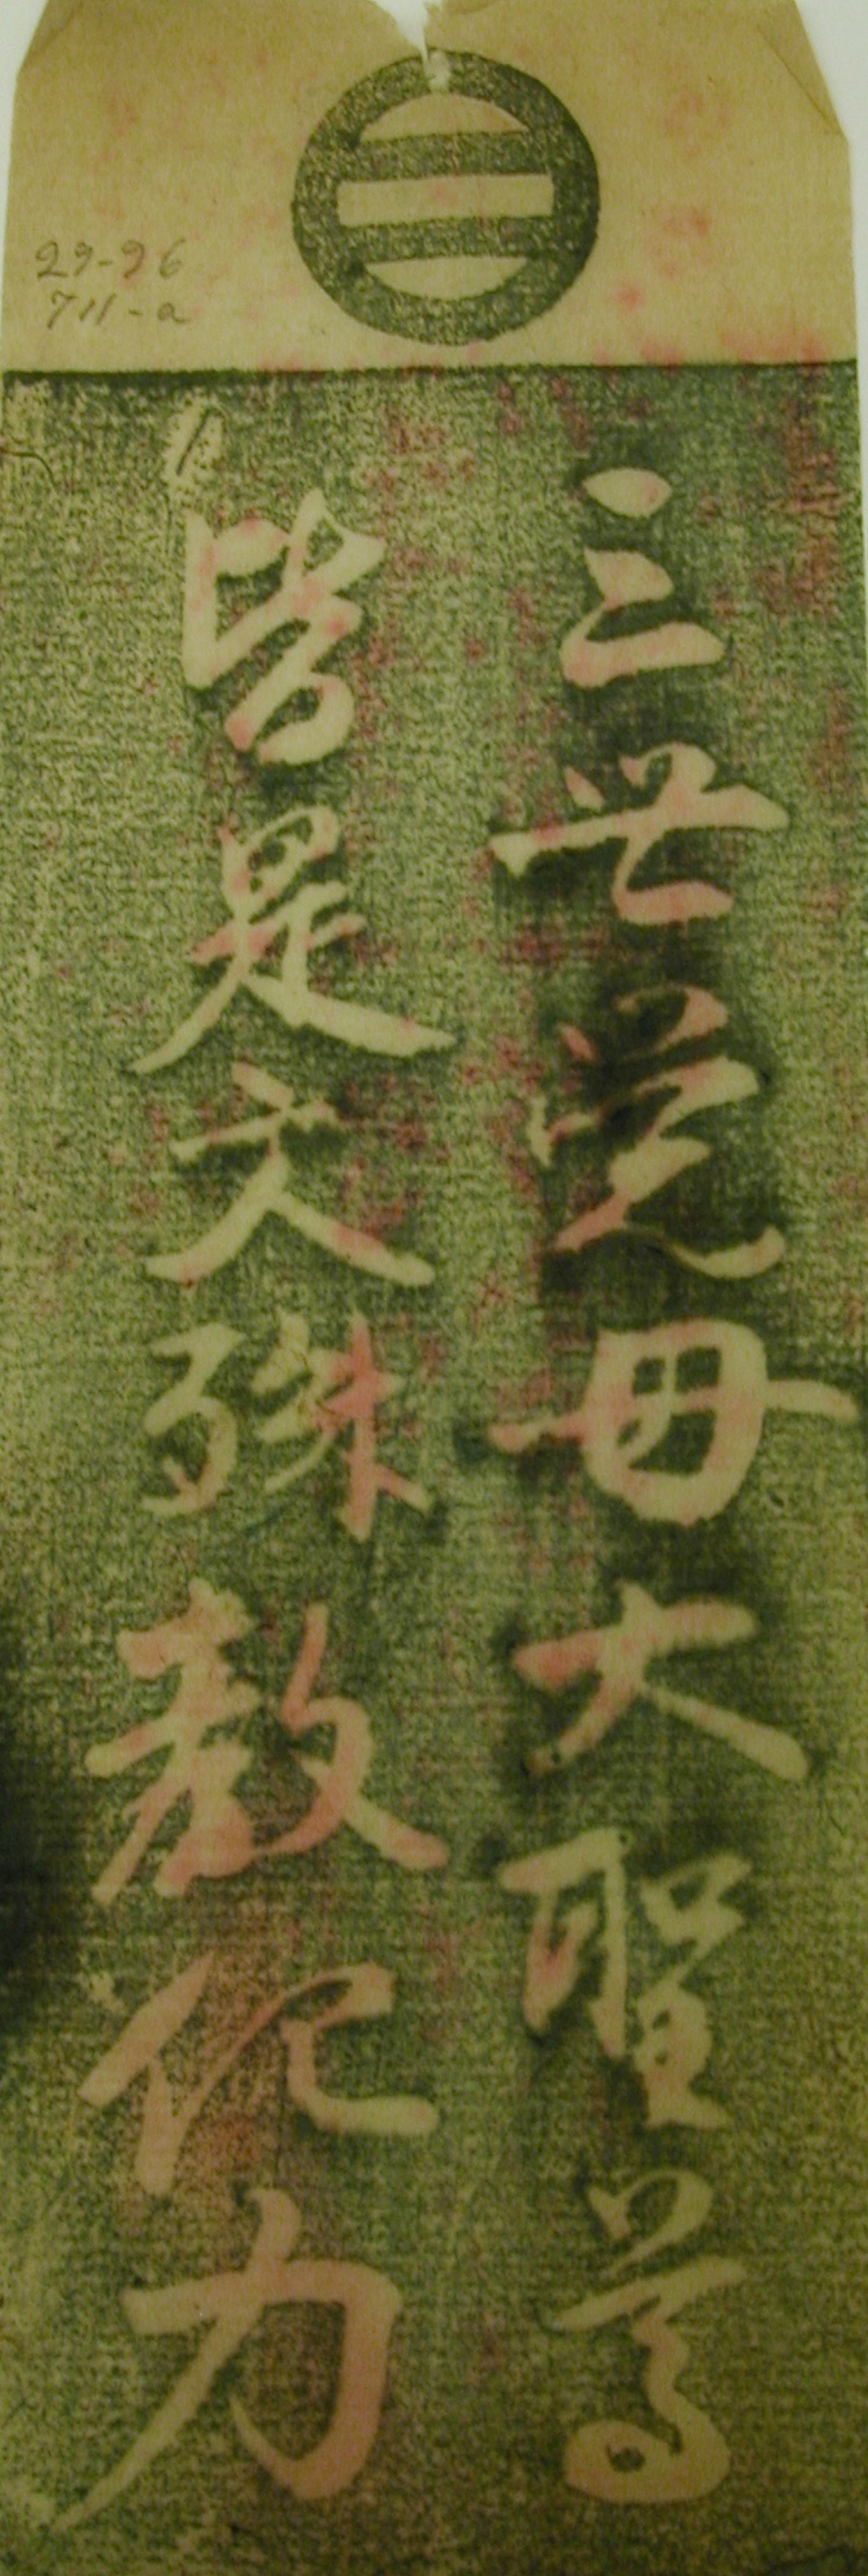 29-96
711-a
三世覚母大聖尊
皆是文殊教化力